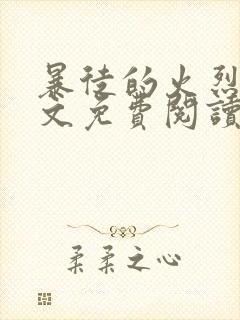 暴徒的火烈
文免費閱讀
柔柔之心